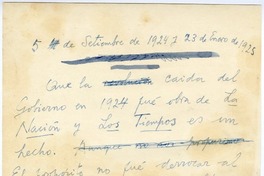 5 de Setiembre de 1924 y 23 de Enero de 1925
Que la revolución caida del
Gobierno en 1924 fué obra de La
Nación y Los Tiempos es un
hecho. Aunque no se propusieron
El propósito no fué derrocar al